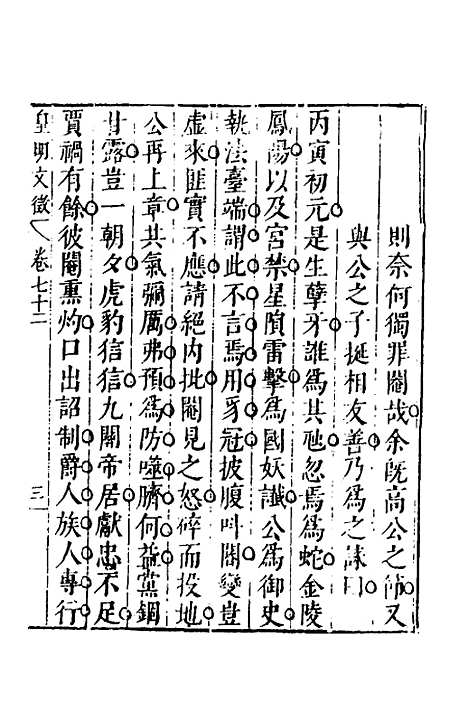 則奈何獨罪閹哉余旣高公之節又
與公之子挺相友善乃爲之誄曰
丙寅初元是生孽牙誰爲其虺忽焉爲蛇金陵
鳳陽以及宮禁星隕雷擊爲國妖讖公爲御史
執法臺端謂此不言焉用豸冠披腹呌閽變豈
虛來匪實不應請絕內批閹見之怒碎而投地
公再上章其氣彌厲弗預爲防噬臍何益黨錮
甘露豈一朝夕虎豹狺狺九關帝居獻忠不足
賈禍有餘彼閹熏灼口出詔制爵人族人專行
皇明文徵 卷七十二 三